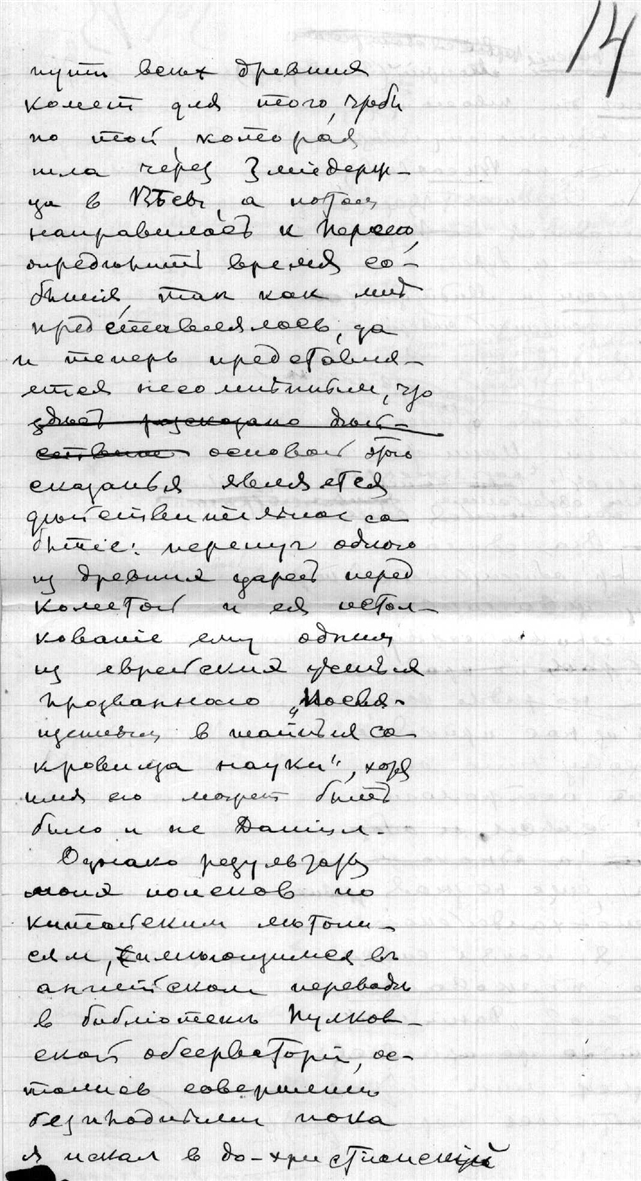 14
пути всех древних
комет для того, чтобы
по той, которая
шла через Змiедерж-
ца в Вѣсы, а потом
направилась к Персею,
опредѣлить время со-
бытия, так как мнѣ
представлялось, да
и теперь представля-
ется несомнѣнным, что
здѣсь разсказано дѣй-
ствит основой этого
сказанья является
дѣйствительное со
бытiе: перепуг одного
из древних царей перед
кометой и ея истол-
кованiе ему одним
из еврейских ученых
прозванного „Посвя-
щенным в тайныя со
кровища науки", хотя
имя его может быть
было и не Данiил.
Однако результаты
моих поисков по
китайским лѣтопи-
сям, имѣющимся въ
англiйском переводѣ
в библiотекѣ Пулков-
ской обсерваторiи, ос-
тались совершенно
безплодными пока
я искал в до-христианский